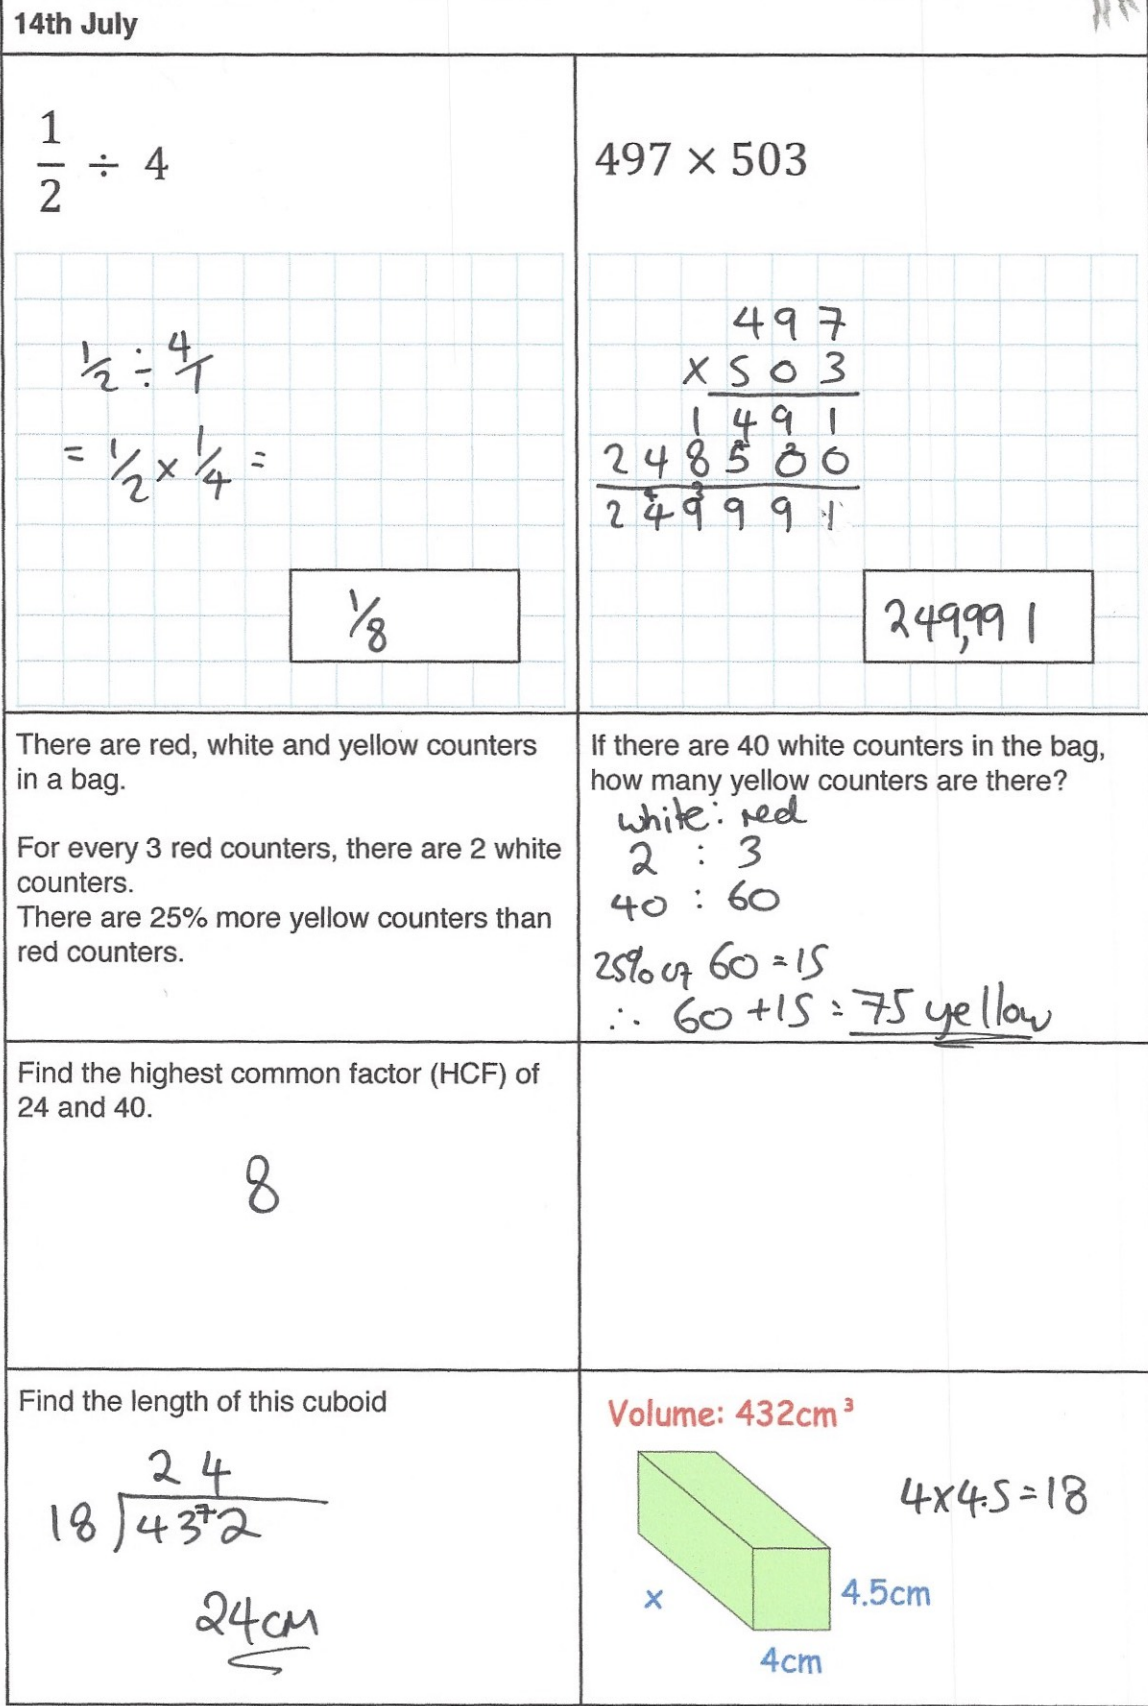 14th July
1/2 ÷ 4
1/2 ÷ 4/1
= 1/2 × 1/4 =
1/8
497 × 503
497
× 503
1491
248500
249991
249,991
There are red, white and yellow counters
in a bag.
For every 3 red counters, there are 2 white
counters.
There are 25% more yellow counters than
red counters.
If there are 40 white counters in the bag,
how many yellow counters are there?
white : red
2 : 3
40 : 60
25% of 60 = 15
∴ 60 + 15 = 75 yellow
Find the highest common factor (HCF) of
24 and 40.
8
Find the length of this cuboid
24
18 43⁷2
24cm
Volume: 432cm³
4×4.5=18
x
4.5cm
4cm